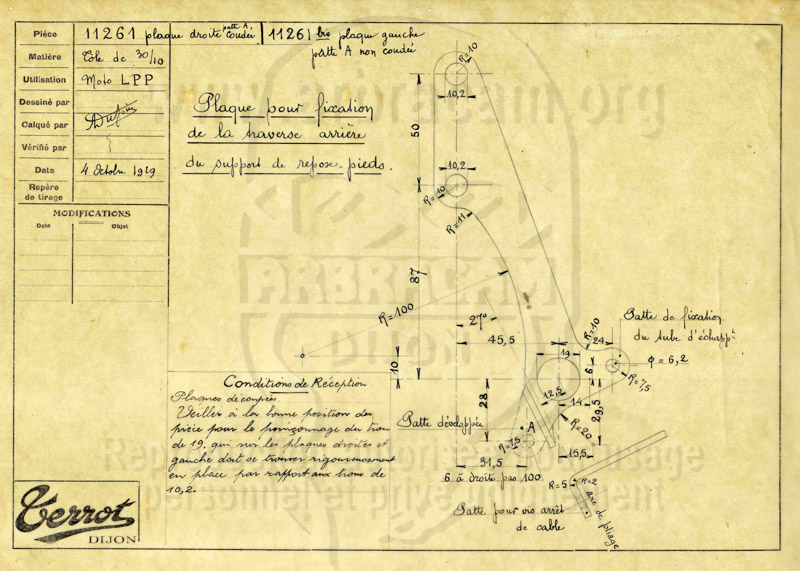 Pièce 11261 plaque droite patte A, coudée / 11261 bis plaque gauche
patte A non coudée
Matière Tôle de 30/10
Utilisation Moto LPP
Dessiné par
Calqué par
Vérifié par
Date 4 Octobre 1929
Repère
de tirage
MODIFICATIONS
Date Objet
Plaque pour fixation
de la traverse arrière
du support de repose-pieds.
R=10
10,2
50
10,2
R=10
R=11
87
R=100
27°
45,5
10
19
R=10
24
6
Patte de fixation
du tube d'échappt
φ = 6,2
R=7,5
12,5
14
29,5
28
R=20
A
R=7,5
15,5
31,5
6 à droite pas 100
Patte développée
R=5
R=2
axe de pliage
Patte pour vis arrêt
de cable
Conditions de Réception
Plaques découpées
Veiller à la bonne position des
pièce pour le poinçonnage du trou
de 19, qui sur les plaques droites et
gauche doit se trouver rigoureusement
en place par rapport aux trous de
10,2.
Terrot
DIJON
www.arbracam.org
ARBRACAM
DIJON